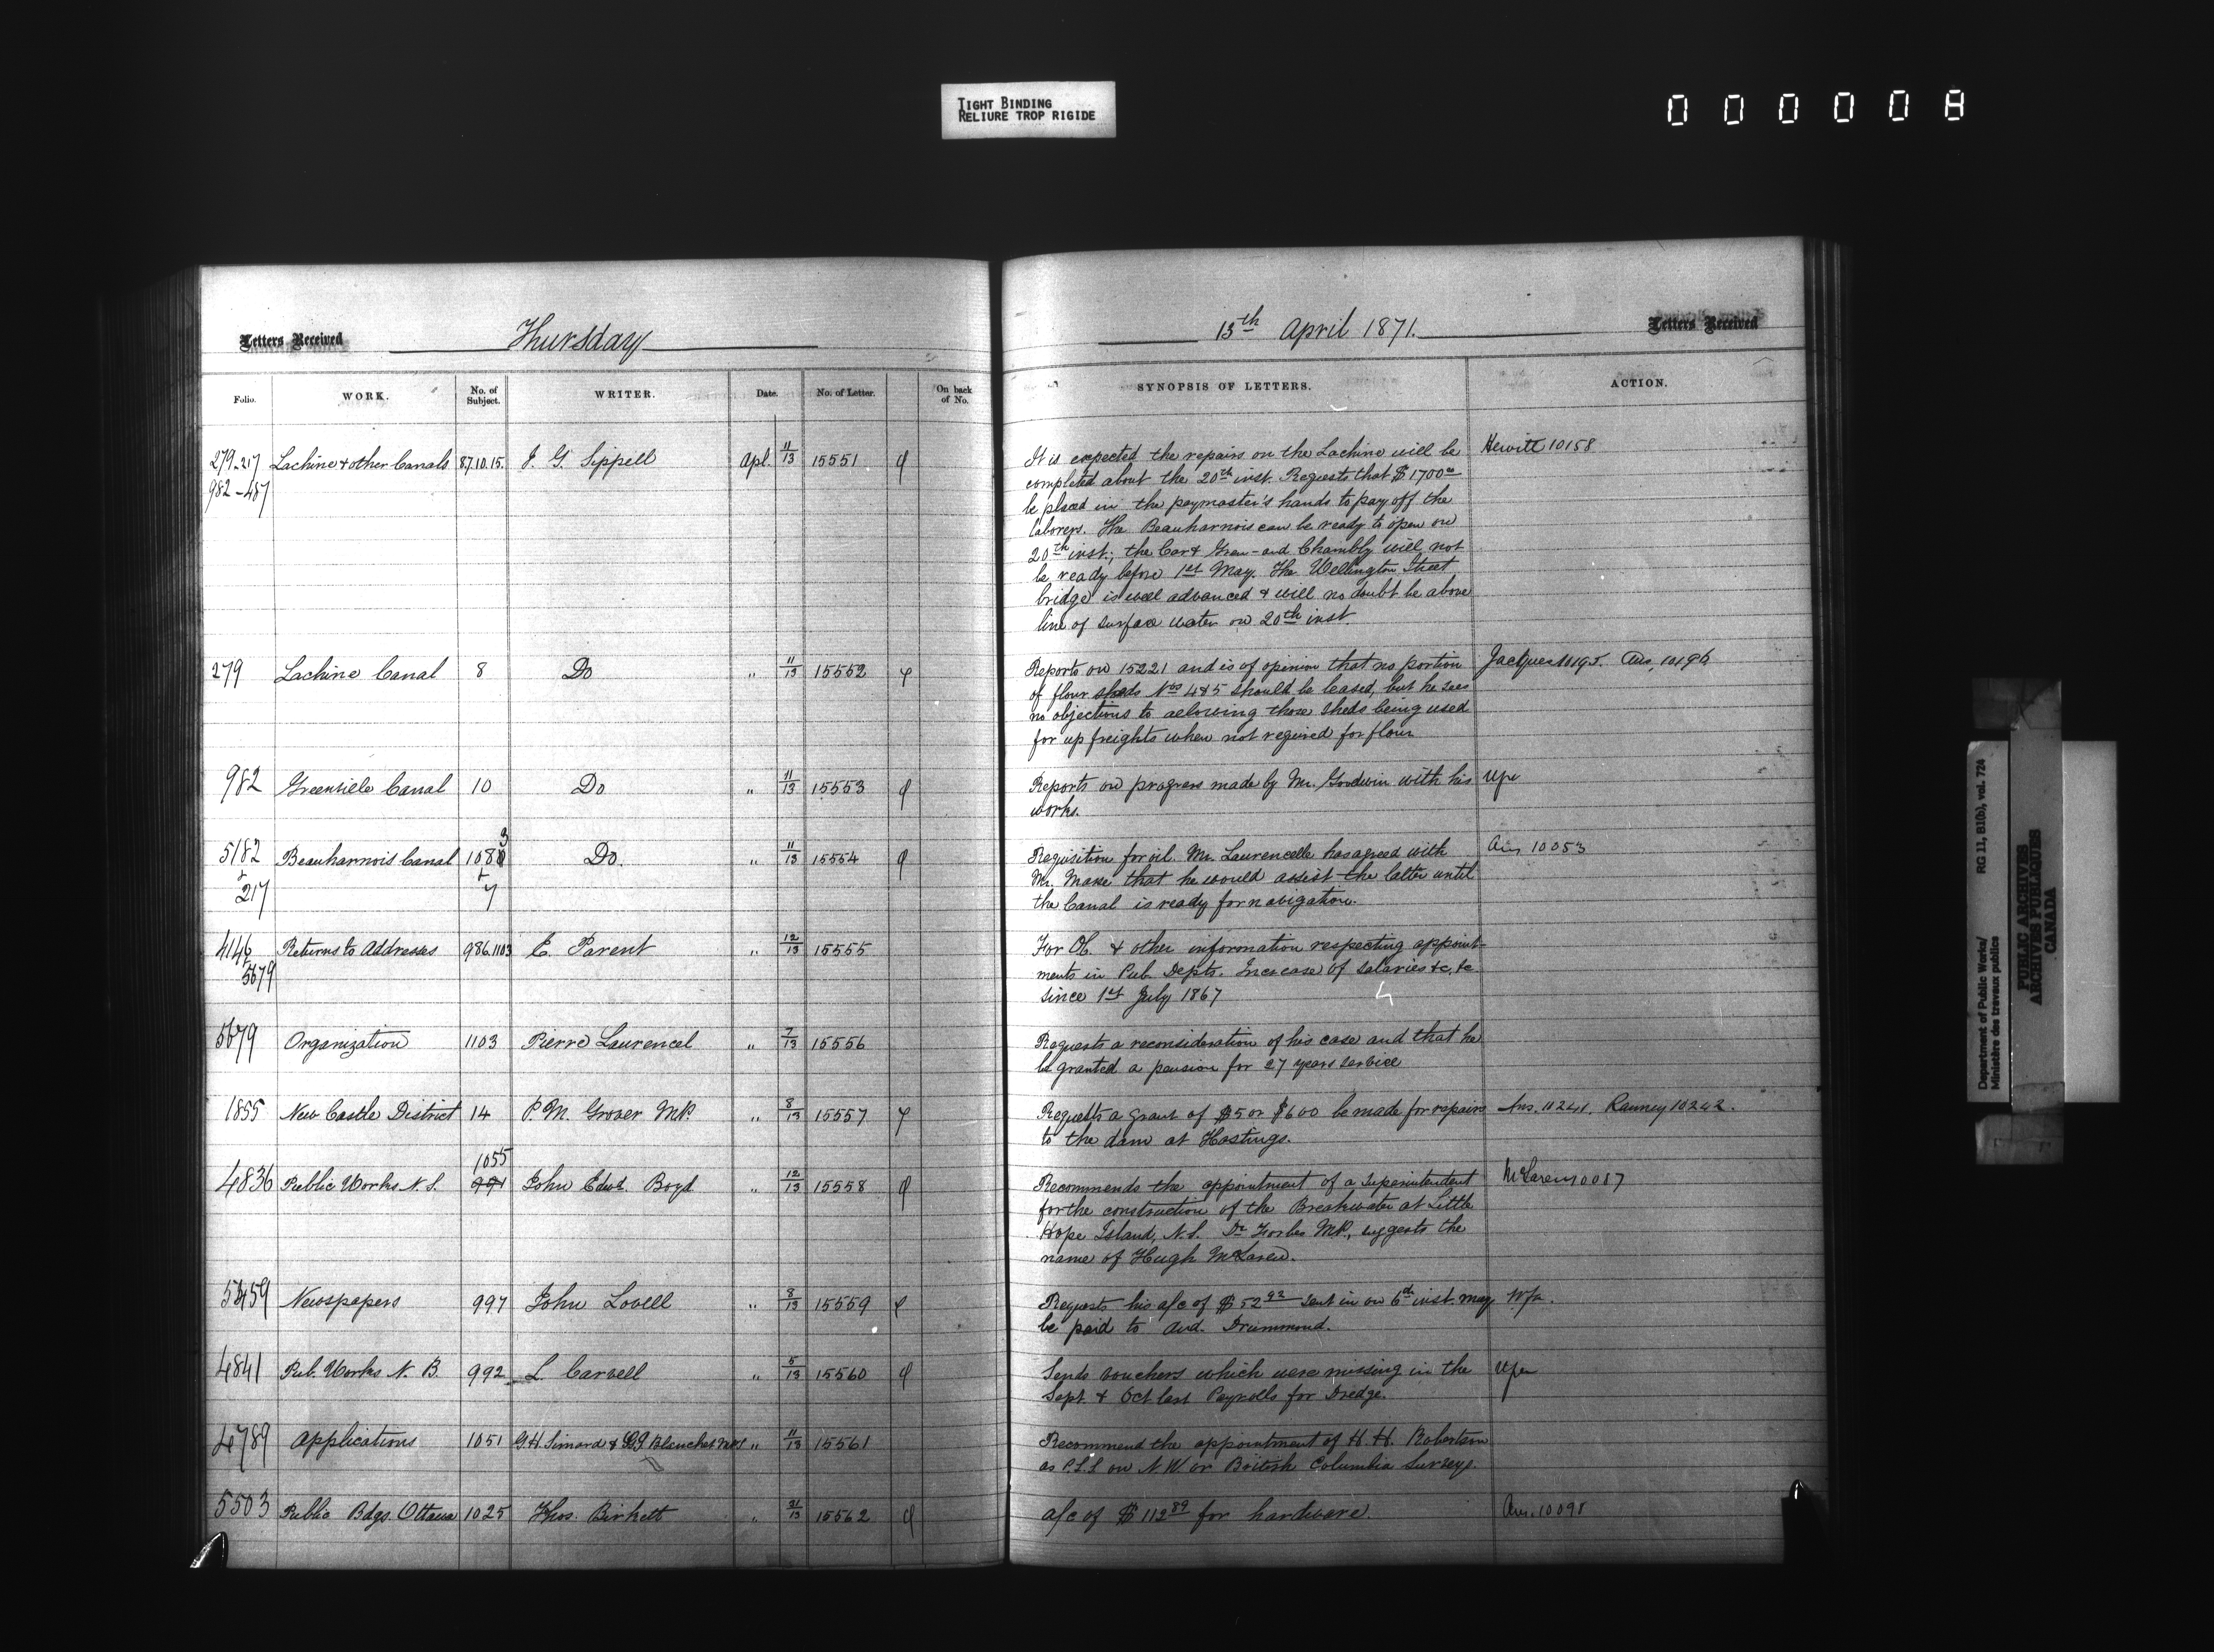 TIGHT BINDING
RELIURE TROP RIGIDE
000008
Letters Received
Thursday
13th April 1871.
Letters Received
Folio.
WORK.
No. of Subject.
WRITER.
Date.
No. of Letter.
On back of No.
SYNOPSIS OF LETTERS.
ACTION.
279-217 Lachine & other Canals 87.10.15. J. G. Sippell Apl. 11/13 15551
982-487
It is expected the repairs on the Lachine will be Hewitt 10158
completed about the 20th inst. Requests that $1700 00
be placed in the paymaster's hands to pay off the
laborers. The Beauharnois can be ready to open on
20th inst; the Car & Gren- and Chambly will not
be ready before 1st May. The Wellington Street
bridge is well advanced & will no doubt be above
line of surface water on 20th inst.
279 Lachine Canal 8 Do " 11/13 15552
Reports on 15221 and is of opinion that no portion Jacques 10195. Ans. 10196
of flour sheds Nos 4 & 5 should be leased, but he sees
no objections to allowing those sheds being used
for up freights when not required for flour
982 Grenville Canal 10 Do " 11/13 15553
Reports on progress made by Mr. Goodwin with his
works.
5182 Beauharnois Canal 1083 Do. " 11/13 15554
& 217 & 7
Requisition for oil. Mr. Laurencelle has agreed with Ans 10053
Mr. that he would assist the latter until
the Canal is ready for navigation.
4146 Returns to Addresses 986.1103 E. Parent " 12/13 15555
5679
For OC. & other information respecting appoint-
ments in Pub. Depts. Increase of salaries &c, &c
since 1st July 1867
5679 Organization 1103 Pierre Laurencel " 7/13 15556
Requests a reconsideration of his case and that he
be granted a pension for 27 years service
1855 New Castle District 14 P. M. Grover M.P. " 8/13 15557
Requests a grant of $5 or $600 be made for repairs Ans. 10241. Ranney 10242.
to the dam at Hastings.
1055
4836 Public Works N. S. 991 John Edwd. Boyd " 12/13 15558
Recommends the appointment of a Superintendent McLaren 10087
for the construction of the Breakwater at Little
Hope Island, N.S. Dr Forbes M.P., suggests the
name of Hugh McLaren.
5459 Newspapers 997 John Lovell " 8/13 15559
Requests his a/c of $52 92 sent in on 6th inst. may
be paid to And. Drummond.
4841 Pub. Works N. B. 992 L. Carvell " 5/13 15560
Sends vouchers which were missing in the
Sept & Oct last Payrolls for Dredge.
4789 Applications 1051 G. H. Simard & Blanchet MPs " 11/13 15561
Recommend the appointment of H. H. Robertson
as P.L.S on N. W or British Columbia Surveys.
5503 Public Bdgs. Ottawa 1025 Thos. Birkett " 31/13 15562
a/c of $112 89 for hardware. Ans. 10098
Department of Public Works/ RG 11, B1(b), vol. 724
Ministère des travaux publics
PUBLIC ARCHIVES
ARCHIVES PUBLIQUES
CANADA